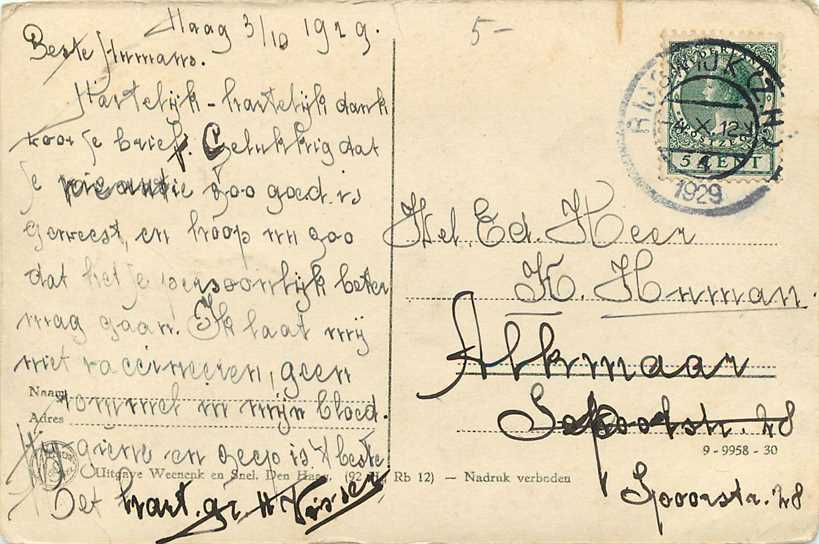 Haag 3/10 1929.
5-
Beste Humans.
Hartelijk - hartelijk dank
voor je brief. Gelukkig dat
je vicantie zoo goed is
geweest, en hoop nu zoo
dat het je persoonlijk beter
mag gaan. Ik laat mij
niet vaccineeren, geen
rommel in mijn bloed.
Hygiene en is 't beste
Met hart. gr. H Visser
Naam
Adres
Uitgave Weenenk en Snel. Den Haag. Rb 12) — Nadruk verboden
NEDERLAND
POSTZEGEL
5 CENT
RIJSWIJK (Z.H.)
X.12
1929
Wel. Ed. Heer
K. Human.
Alkmaar
28
9-9958-30
Spoorstr. 28